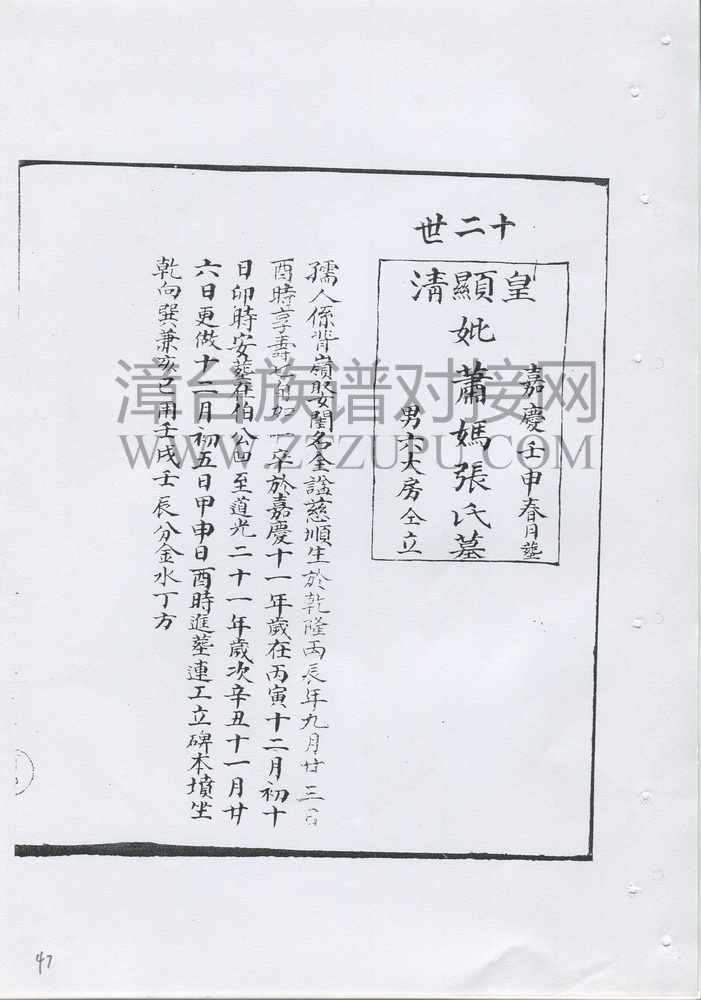 十二世
皇清
顯妣蕭媽張氏墓
嘉慶壬申春月塟
男六大房仝立
孺人係背嶺娶閨名全諡慈順生於乾隆丙辰年九月廿三
酉時享壽七加一卒於嘉慶十一年歲在丙寅十二月初十
日卯時安塟在伯公凹至道光二十一年歲次辛丑十一月廿
六日更做十二月初五日甲申日酉時進塟連工立碑本墳坐
乾向巽兼亥巳用壬戌壬辰分金水丁方
漳台族谱对接网
WWW.ZTZUPU.COM
47